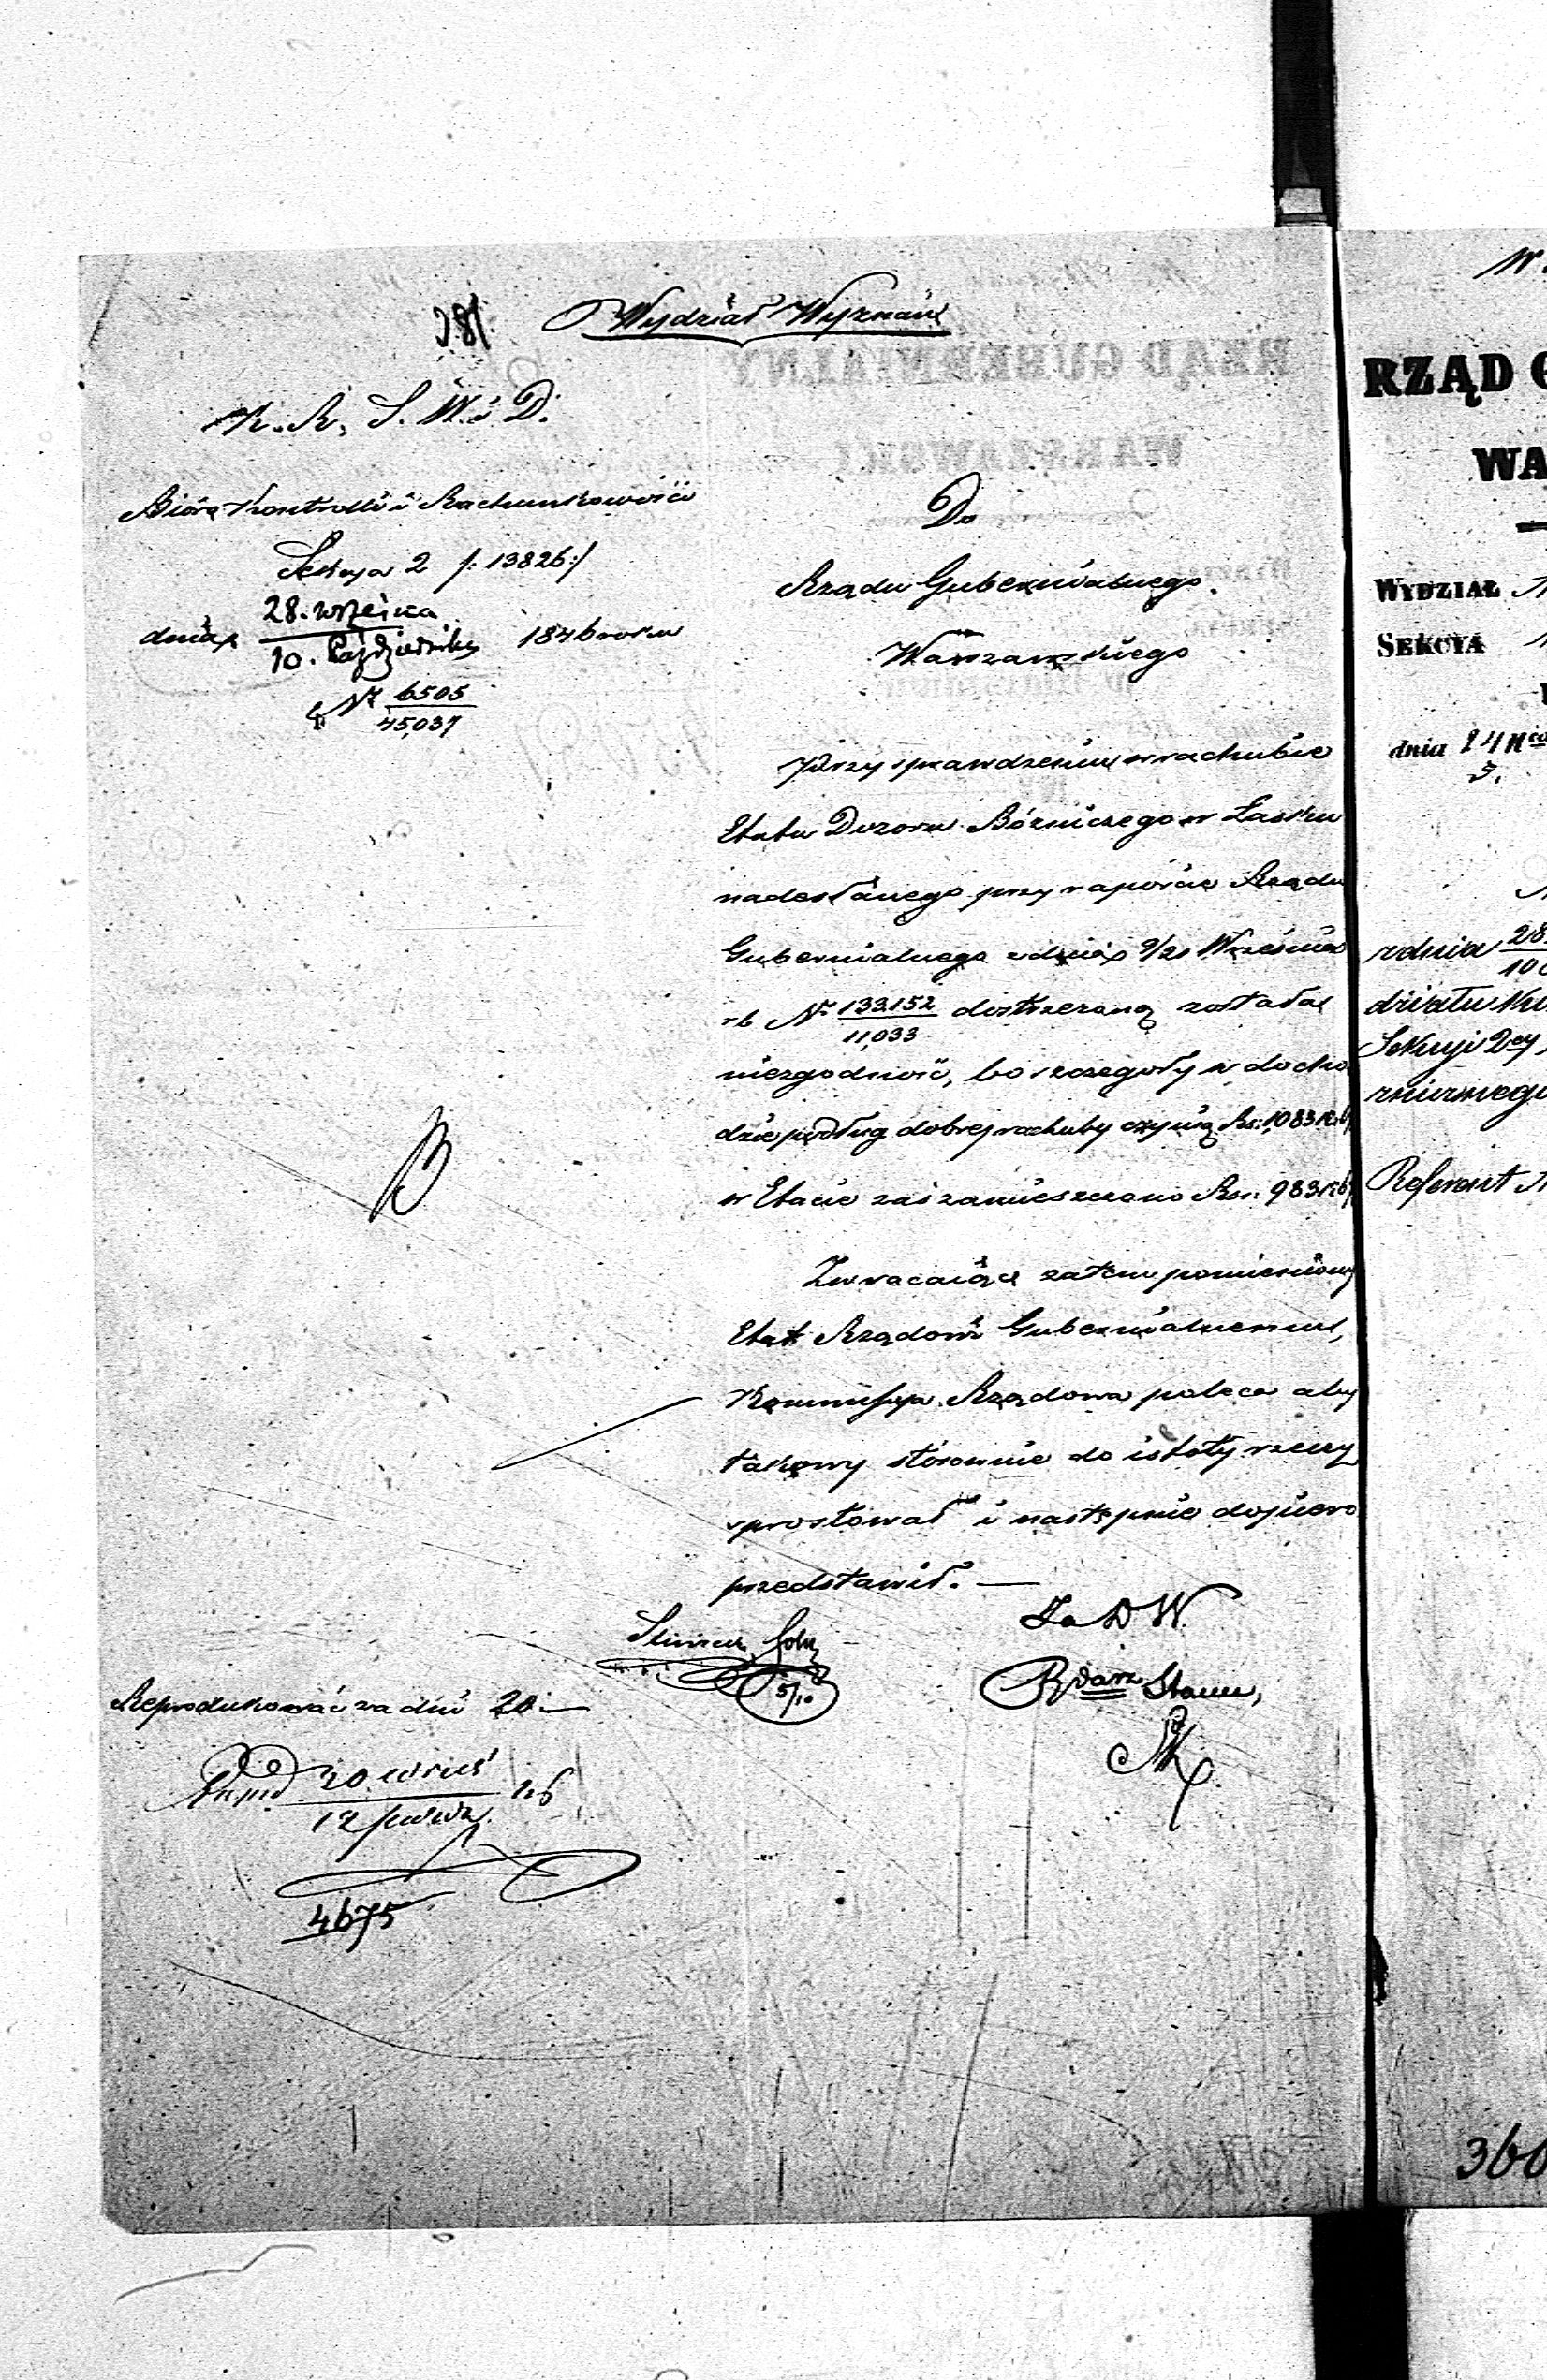 381.
Wydział Wyznań
K. R. S. W. i D.
Bióro Kontrolli i Rachunkowości
Sekcya 2 /: 13826:/
dnia 28. września / 10. Października 1846 roku
N° 6505 / 45,037
Do
Rządu Gubernialnego
Warszawskiego
Przy sprawdzeniu w rachubie
Etatu Dozoru Bóżniczego w Łasku
nadesłanego przy raporcie Rządu
Gubernialnego z dnia 9/21 Września
rb N° 133152 / 11,033 dostrzeżoną została
niezgodność, bo szczegóły w docho
dzie podług dobrej rachuby czynią Rs: 1,083 k. 6
w Etacie zaś zamieszczono Rs: 983 k. 6
Zwracaiąc zatem pomieniony
Etat Rządowi Gubernialnemu,
Kommissya Rządowa poleca aby
takowy stósownie do istoty rzeczy
sprostował i następnie dopiero
przedstawił. —
Za D W.
5/10
Reprodukować za dni 20 —
30 wrześ / 12 paźdz.
4675
RZĄD G
WA
WYDZIAŁ
SEKCYA
dnia 24
z dnia 28 / 10
Sekcyi 2ey
Referent
360